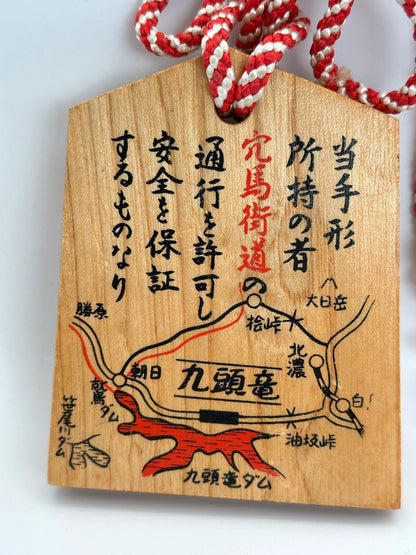 当手形
所持の者
穴馬街道の
通行を許可し
安全を保証
するものなり
大日岳
桧峠
勝原
北濃
朝日
九頭竜
白
鷲ダム
油坂峠
笹生川ダム
九頭竜ダム